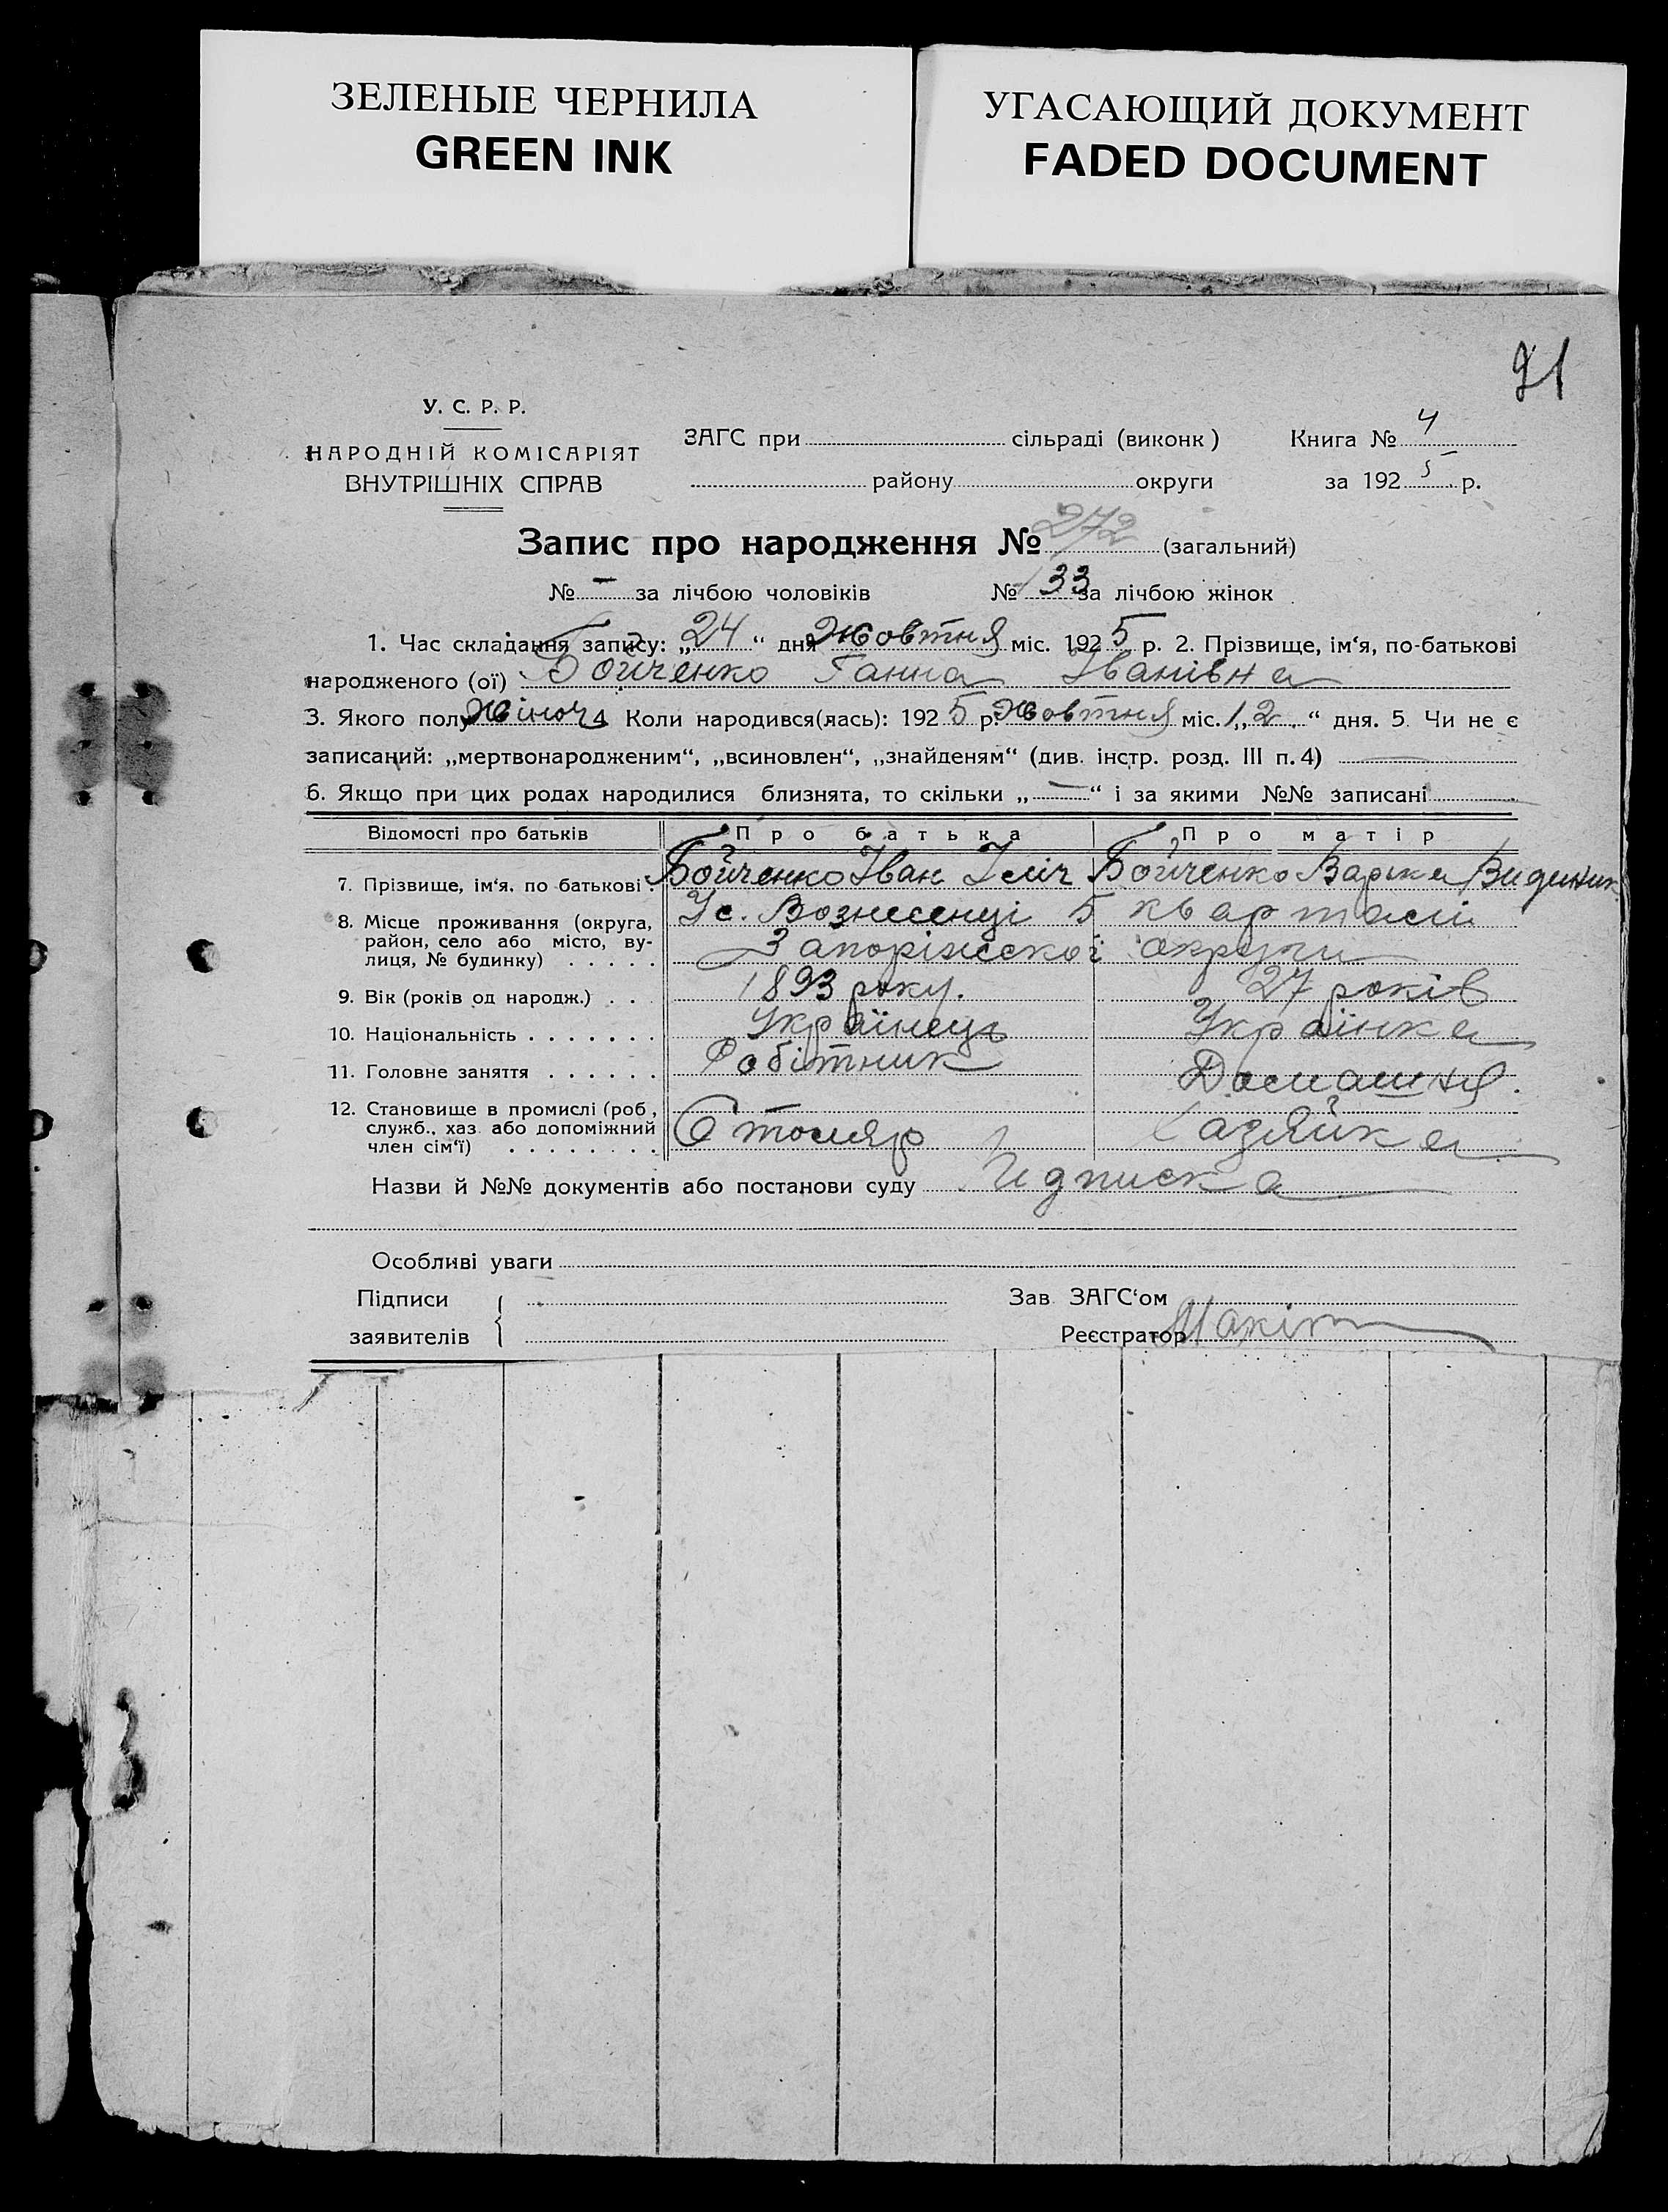 ЗЕЛЕНЫЕ ЧЕРНИЛА
GREEN INK
УГАСАЮЩИЙ ДОКУМЕНТ
FADED DOCUMENT
У. С. Р. Р.
НАРОДНІЙ КОМІСАРІЯТ
ВНУТРІШНІХ СПРАВ
ЗАГС при сільраді (виконк)
району округи
Книга № 4
за 192 5 р.
Запис про народження № 272 (загальний)
№ — за лічбою чоловіків № 133 за лічбою жінок
1. Час складання запису: „24“ дня Жовтня міс. 1925 р. 2. Прізвище, ім‘я, по-батькові
народженого (ої) Бойченко Ганна Іванівна
3. Якого полу Жіноч 4 Коли народився(лась): 1925 р. Жовтня міс. „12“ дня. 5. Чи не є
записаний: „мертвонародженим“, „всиновлен“, „знайденям“ (див. інстр. розд. III п. 4) —
6. Якщо при цих родах народилися близнята, то скільки „—“ і за якими №№ записані
Відомості про батьків Про батька Про матір
7. Прізвище, ім‘я. по батькові. Бойченко Іван Ілліч Бойченко Варька
8. Місце проживання (округа, район, село або місто, вулиця, № будинку) Ус. Вознесенці 5 кварталі
Запоріжської округи
9. Вік (років од народж.) 1893 року. 27 років
10. Національність Українець Українка
11. Головне заняття Робітник Домашня.
12. Становище в промислі (роб, служб., хаз. або допоміжний член сім‘ї) Столяр Хазяйка
Назви й №№ документів або постанови суду Підписка
Особливі уваги
Підписи
заявителів
Зав. ЗАГС‘ом
Реєстратор